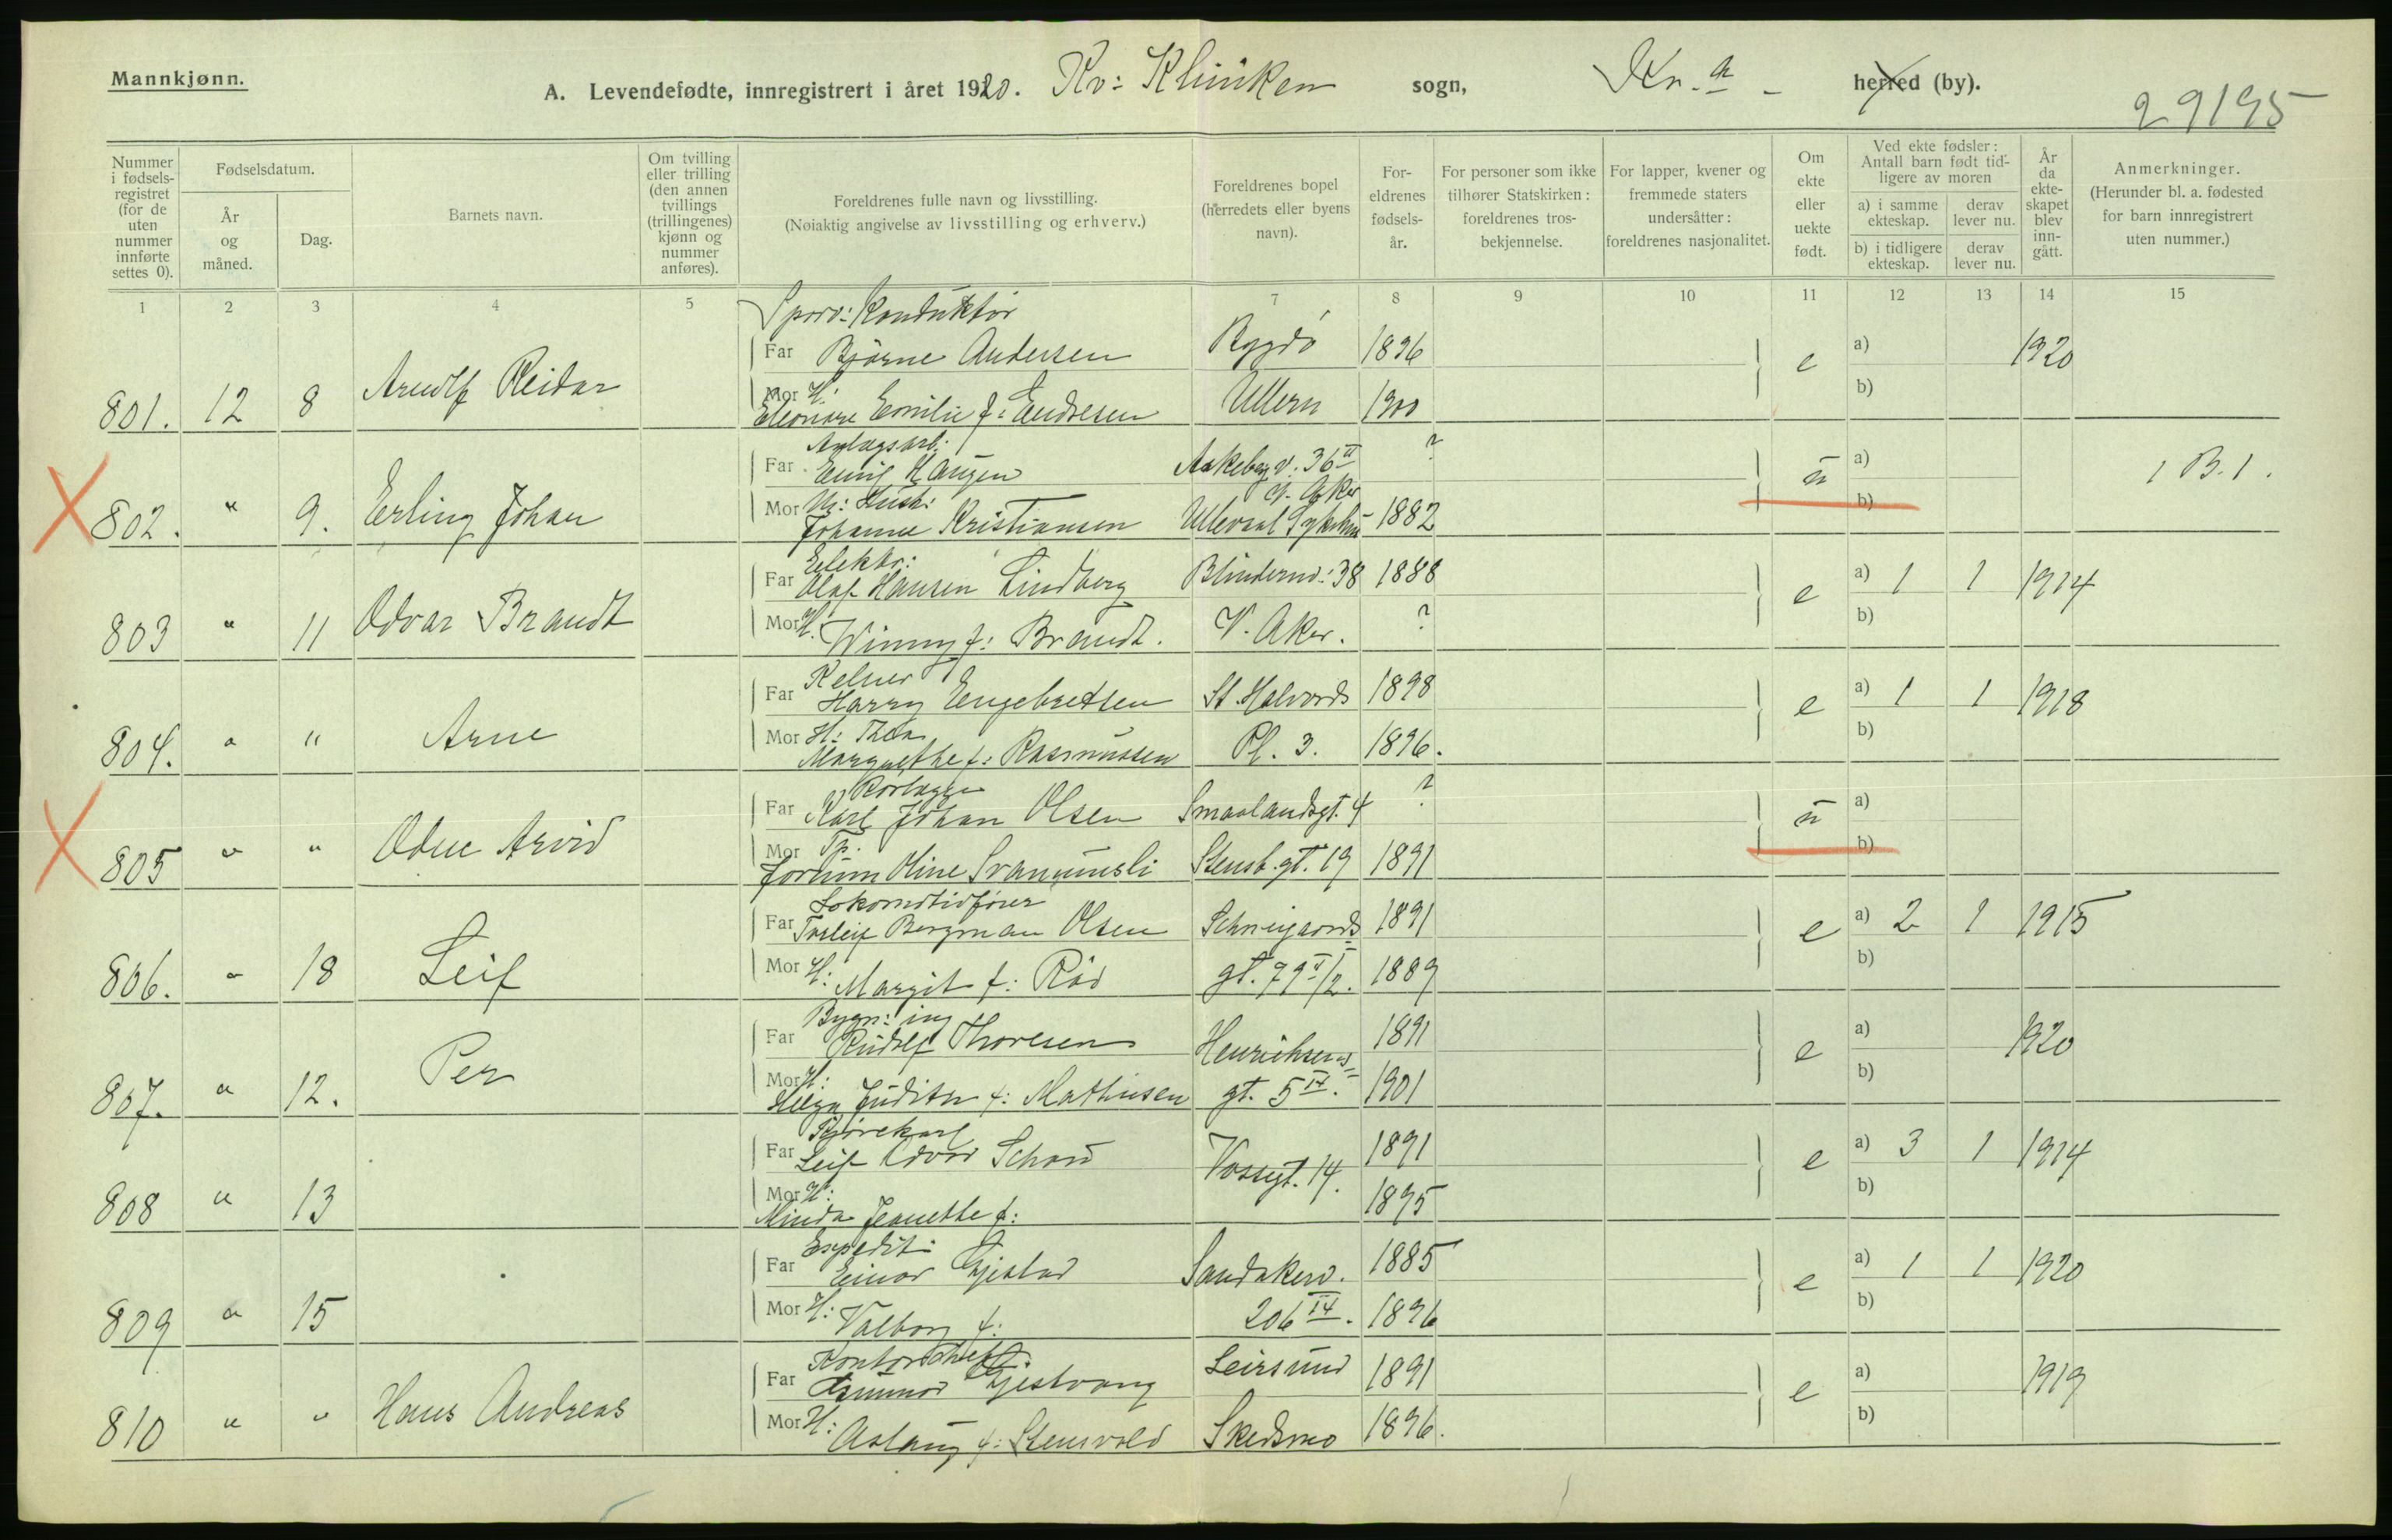 Mannkjønn.
A. Levendefødte, innregistrert i året 1920. Kv: Kliniken sogn, Kr.a herred (by).
29195
Nummer i fødsels-registret (for de uten nummer innførte settes 0).
Fødselsdatum.
År og måned.
Dag.
Barnets navn.
Om tvilling eller trilling (den annen tvillings (trillingenes) kjønn og nummer anføres).
Foreldrenes fulle navn og livsstilling.
(Nøiaktig angivelse av livsstilling og erhverv.)
Foreldrenes bopel (herredets eller byens navn).
For-eldrenes fødsels-år.
For personer som ikke tilhører Statskirken: foreldrenes tros-bekjennelse.
For lapper, kvener og fremmede staters undersåtter: foreldrenes nasjonalitet.
Om ekte eller uekte født.
Ved ekte fødsler: Antall barn født tid-ligere av moren
a) i samme ekteskap.
derav lever nu.
b) i tidligere ekteskap.
derav lever nu.
År da ekte-skapet blev inn-gått.
Anmerkninger.
(Herunder bl. a. fødested for barn innregistrert uten nummer.)
1 2 3 4 5 7 8 9 10 11 12 13 14 15
Sporv: Konduktør
Far Bjarne Andersen Bygdö 1896 e a) 1920
801. 12 8 Arnulf Reidar
Mor H: Eleonore Emilie f: Endresen Ullern 1900 b)
Anlægsarb.
Far Emil Haugen Aakebergv. 36 II ? u a) 1 B. 1.
V. Aker
802. " 9. Erling Johan
Mor Johanne Kristiansen Ullevaal Sykehus 1882 b)
Elektr:
Far Olaf Hansen Lindberg Blindernv: 38 1888 e a) 1 1 1914
803 " 11 Odvar Brandt
Mor H. Winny f: Brandt. V. Aker. ? b)
Kelner
Far Harry Engebretsen St. Halvards 1898 e a) 1 1 1918
804. " " Arne
Mor H: Thea Margrethe f: Rasmussen Pl. 3. 1896. b)
Rørlægger
Far Karl Johan Olsen Smaalandsgt. 4 ? u a)
805 " " Odne Arvid
Mor Tp. Jorunn Oline Svanumsli Stensb. gt. 19 1891 b)
Lokomotivfører
Far Torleif Bergman Olsen Schweigaards 1891 e a) 2 1 1915
806. " 18 Leif
Mor H: Margit f: Röd gt. 79 1889 b)
Bygn: ing
Far Rudolf Thoresen Henrichsens 1891 e a) 1920
807. " 12. Per
Mor H: Helga Judith f: Mathisen gt. 5 IV. 1901 b)
Kjørekarl
Far Leif Odvar Schou Vossgt. 14. 1891 e a) 3 1 1914
808 " 13
Mor H: Minda Jeanette f: 1895 b)
Expedit:
Far Einar Gjestad Sandakerv. 1885 e a) 1 1 1920
809 " 15
Mor H: Valborg f: 206 IV. 1896 b)
Kontorchef
Far Gunnar Gjestvang Leirsund 1891 e a) 1919
810 " " Hans Andreas
Mor H: Aslaug f: Stensvold Skedsmo 1896. b)